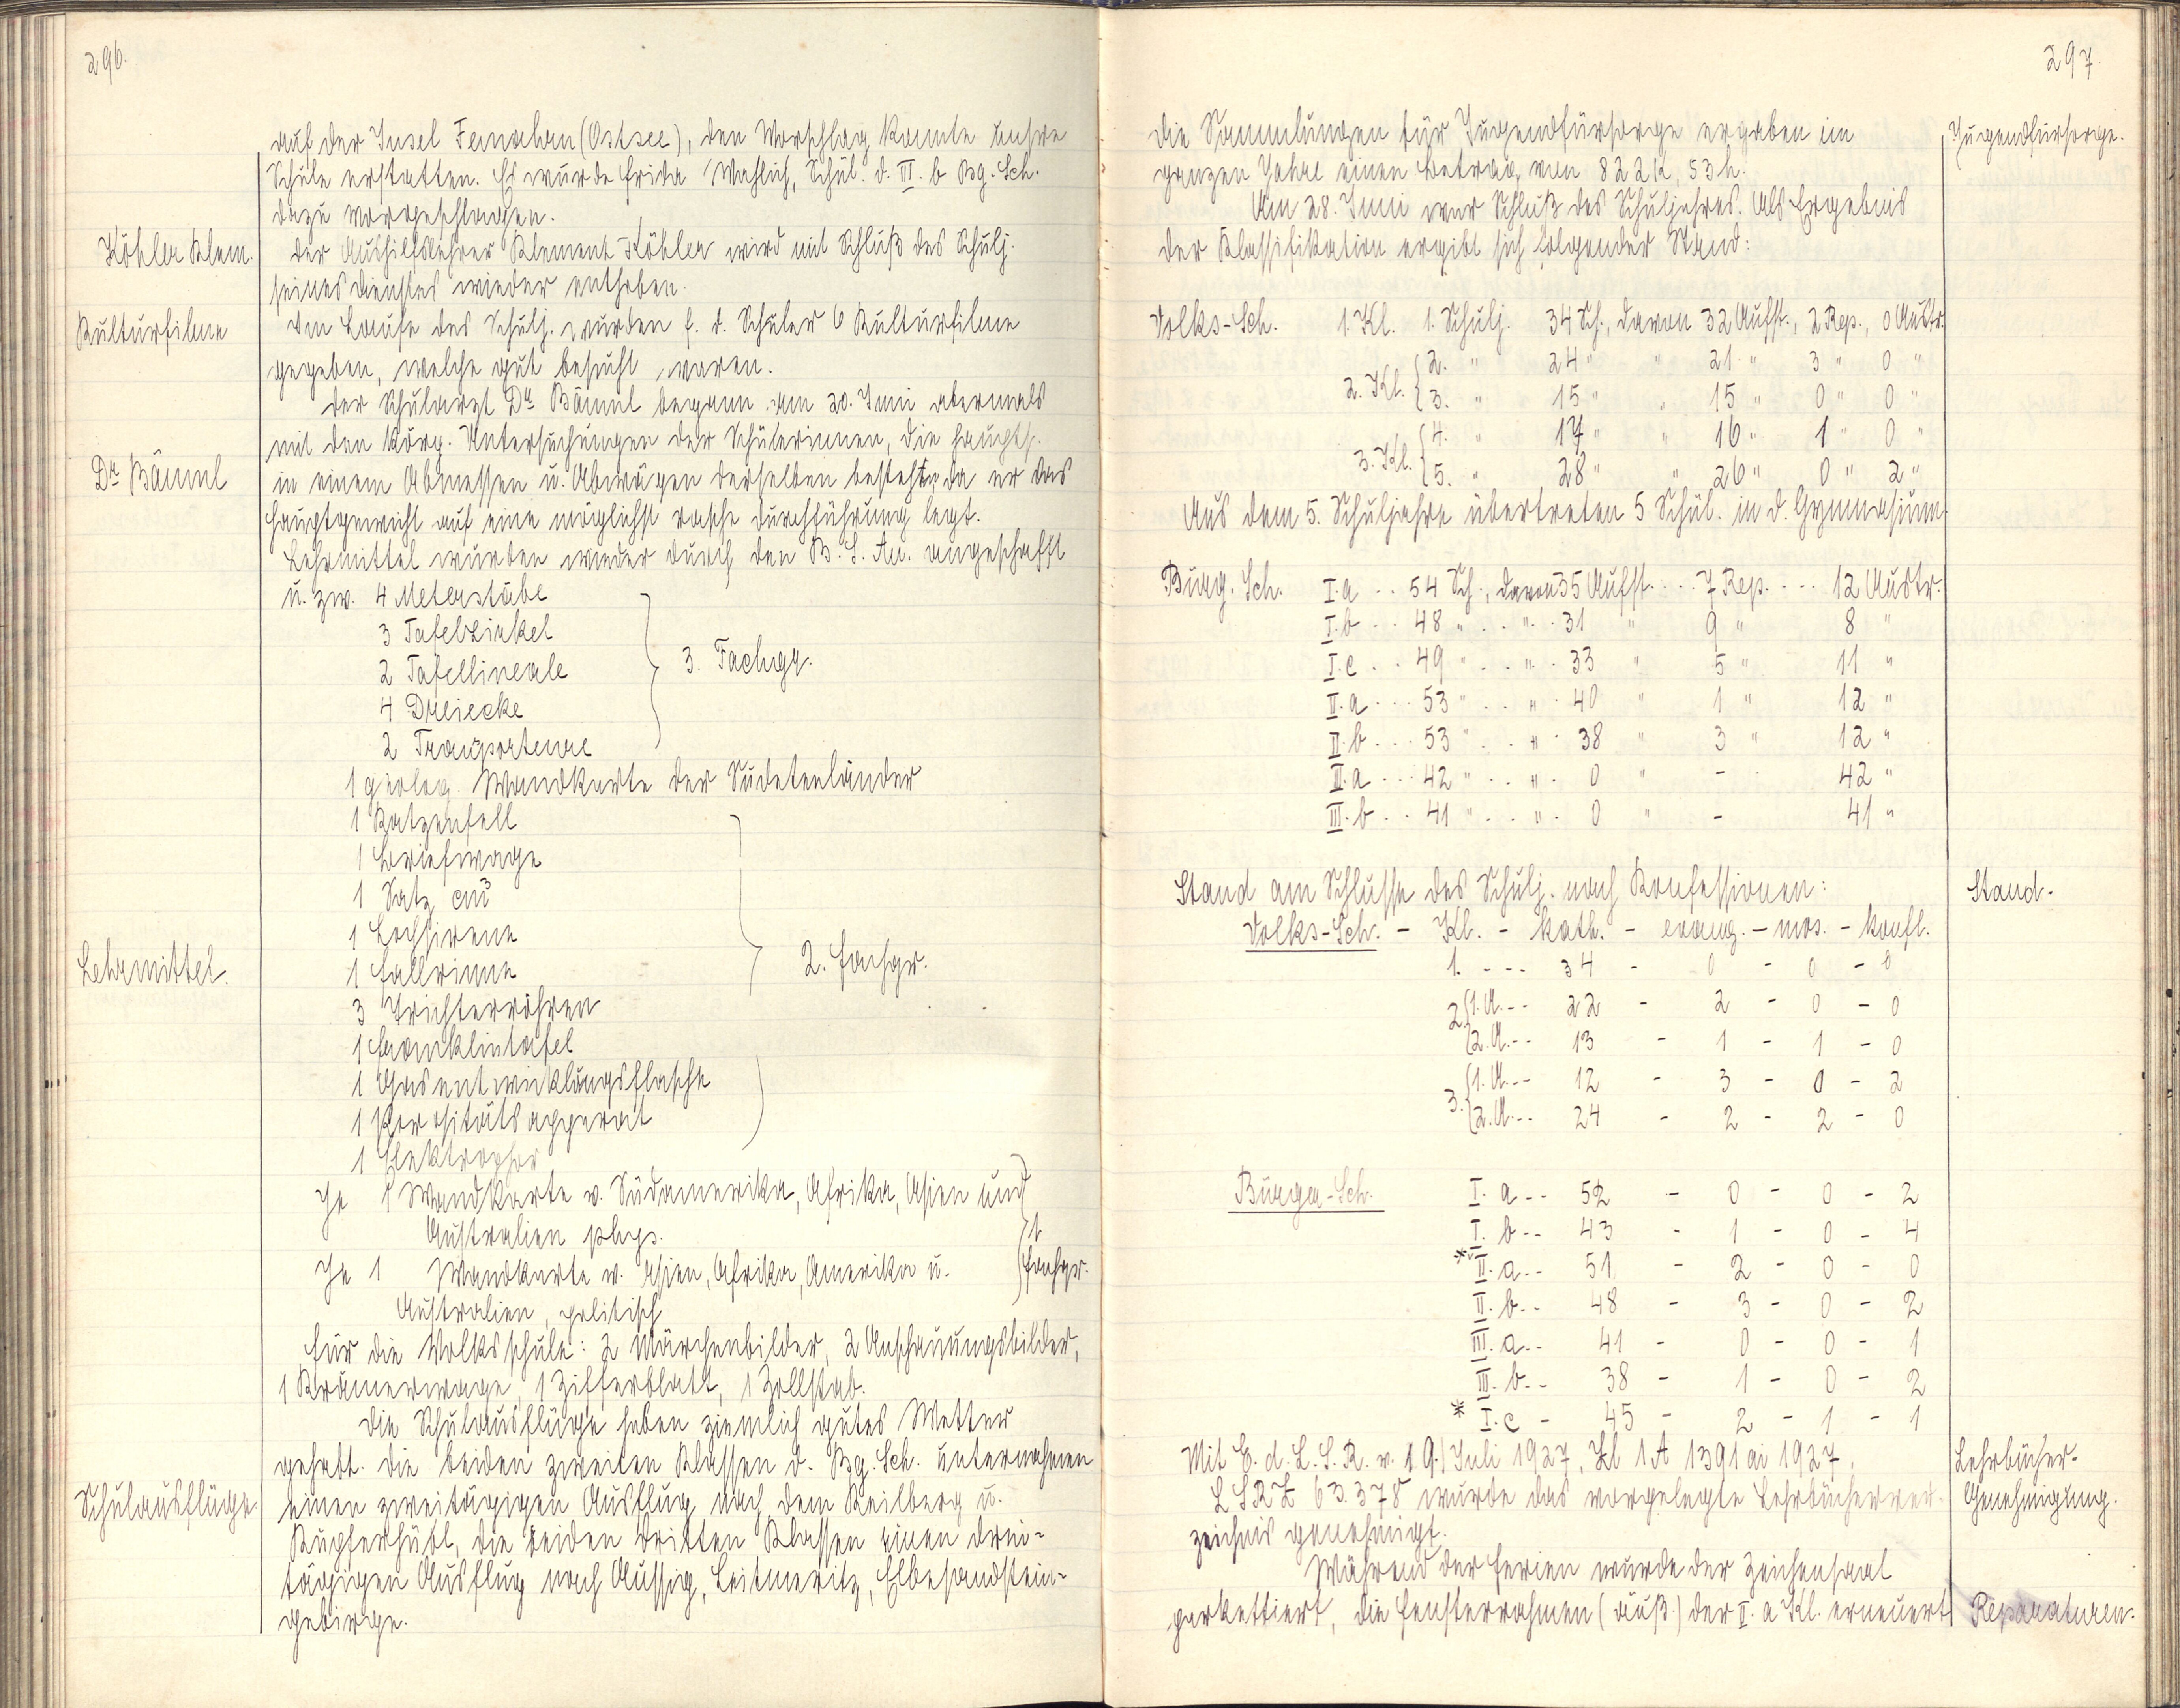 296.
auf der Insel Femahan (Ostsee), den Vorschlag konnte unsre
Schule erstatten. Es wurde Frida Wahlich, Schül. d. III. b Bg. Sch.
dazu vorgeschlagen.
Köhler Klem.
Der Aushilfslehrer Klement Köhler wird mit Schluß des Schulj.
seines Dienstes wieder enthoben.
Kulturfilme
Im Laufe des Schulj. wurden f. d. Schüler 6 Kulturfilme
gegeben, welche gut besucht waren.
Der Schularzt Dr Bäuml begann am 20. Juni abermals
mit den körp. Untersuchungen der Schülerinnen, die haupts.
Dr Bäuml
in einem Abmessen u. Abwägen derselben bestehen da er das
Hauptgewicht auf eine möglichst rasche Durchführung legt.
Lehrmittel wurden wieder durch den B. S. Au. angeschafft
u. zw. 4 Meterstäbe
3 Tafelzirkel
2 Tafellineale
3. Fachgr.
4 Dreiecke
2 Transporteure
1 geolog. Wandkarte der Sudetenländer
1 Katzenfell
1 Briefwage
1 Satz cm³
1 Lochsirene
Lehrmittel.
1 Fallrinne
2. Fachgr.
3 Trichterröhren
1 Franklintafel
1 Gasentwicklungsflasche
1 Porositätsapparat
1 Elektrophor
Je 1 Wandkarte v. Südamerika, Afrika, Asien und
Australien phys.
1.
Je 1 Wandkarte v. Asien, Afrika, Amerika u.
Fachgr.
Australien, politisch
Für die Volksschule: 2 Märchenbilder, 2 Anschauungsbilder,
1 Krämerwage, 1 Zifferblatt, 1 Zollstab.
Die Schulausflüge haben ziemlich gutes Wetter
gehabt. Die beiden zweiten Klassen d. Bg. Sch. unternahmen
Schulausflüge.
einen zweitägigen Ausflug nach dem Keilberg u.
Kupferhübl, die beiden dritten Klassen einen drei-
tägigen Ausflug nach Aussig, Leitmeritz, Elbesandstein-
gebirge.
297
Die Sammlungen für Jugendfürsorge ergaben im
Jugendfürsorge.
ganzen Jahre einen Betrag von 822 K, 53 h.
Am 28. Juni war Schluß des Schuljahres. Als Ergebnis
der Klassifikation ergibt sich folgender Stand:
Volks-Sch. 1. Kl. 1. Schulj. 34 Sch., davon 32 Aufst., 2 Rep., 0 Austr.
2. Kl. 2. " 24 " " 21 " 3 " 0 "
3. " 15 " " 15 " 0 " 0 "
3. Kl. 4. " 17 " " 16 " 1 " 0 "
5. " 28 " " 26 " 0 " 2 "
Aus dem 5. Schuljahre übertreten 5 Schül. in d. Gymnasium.
Bürg. Sch. I. a .. 54 Sch., davon 35 Aufst. ... 7 Rep. .... 12 Austr.
I. b ... 48 " .. " . 31 " 9 " 8 "
I. c .. 49 " .. " . 33 " 5 " 11 "
II. a ... 53 " .. " . 40 " 1 " 12 "
II. b ... 53 " .. " . 38 " 3 " 12 "
III. a ... 42 " .. " . 0 " - 42 "
III. b .. 41 " .. " . 0 " - 41 "
Stand am Schlusse des Schulj. nach Konfessionen:
Stand.
Volks-Sch. - Kl. - kath. - evang. - mos. - konfl.
1. --- 34 - 0 - 0 - 0
2. 1. A. -- 22 - 2 - 0 - 0
2. A. -- 13 - 1 - 1 - 0
3. 1. A. -- 12 - 3 - 0 - 2
2. A. -- 24 - 2 - 2 - 0
Bürger-Sch. I. a -- 52 - 0 - 0 - 2
I. b -- 43 - 1 - 0 - 4
* II. a -- 51 - 2 - 0 - 0
II. b -- 48 - 3 - 0 - 2
III. a -- 41 - 0 - 0 - 1
III. b -- 38 - 1 - 0 - 2
* I. c - 45 - 2 - 1 - 1
Mit E. d. L. S. R. v. 19. Juli 1927, Zl 1A 1391 ai 1927,
Lehrbücher-
LSRZ 63.378 wurde das vorgelegte Lehrbücherver-
Genehmigung.
zeichnis genehmigt.
Während der Ferien wurde der Zeichensaal
parkettiert, die Fensterrahmen (äuß.) der II. a Kl. erneuert
Reparaturen.